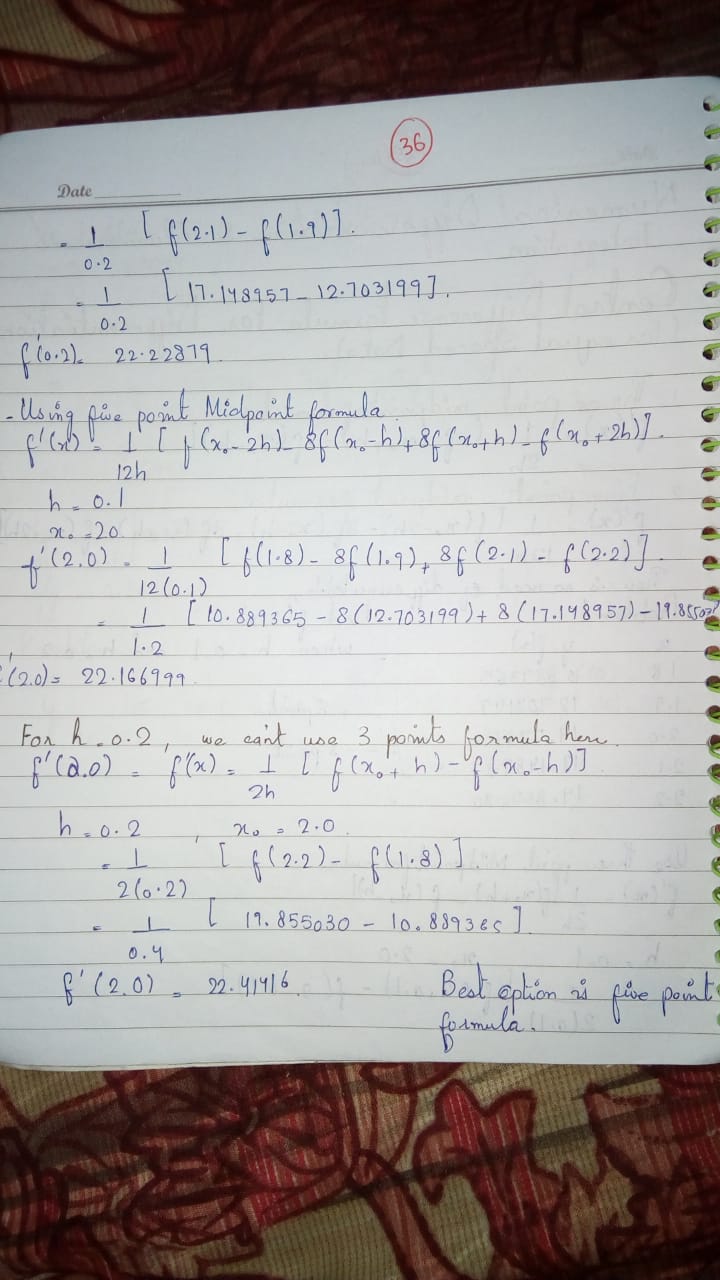 36
Date
= 1/0.2 [ f(2.1) - f(1.9)].
= 1/0.2 [ 17.148957 - 12.703199].
f'(0.2) = 22.22879.
- Using five point Midpoint formula.
f'(x) = 1/12h [ f(x₀ - 2h) - 8f(x₀-h) + 8f(x₀+h) - f(x₀ + 2h)].
h = 0.1
x₀ = 20.
f'(2.0) = 1/12(0.1) [ f(1.8) - 8f(1.9) + 8f(2.1) - f(2.2)].
= 1/1.2 [ 10.889365 - 8(12.703199) + 8(17.148957) - 19.85503
'(2.0) = 22.166999
For h = 0.2, we can't use 3 points formula here.
f'(2.0) = f'(x) = 1/2h [ f(x₀ + h) - f(x₀-h)]
h = 0.2 , x₀ = 2.0.
= 1/2(0.2) [ f(2.2) - f(1.8)].
= 1/0.4 [ 19.855030 - 10.889365].
f'(2.0) = 22.41416.
Best option is five point
formula.